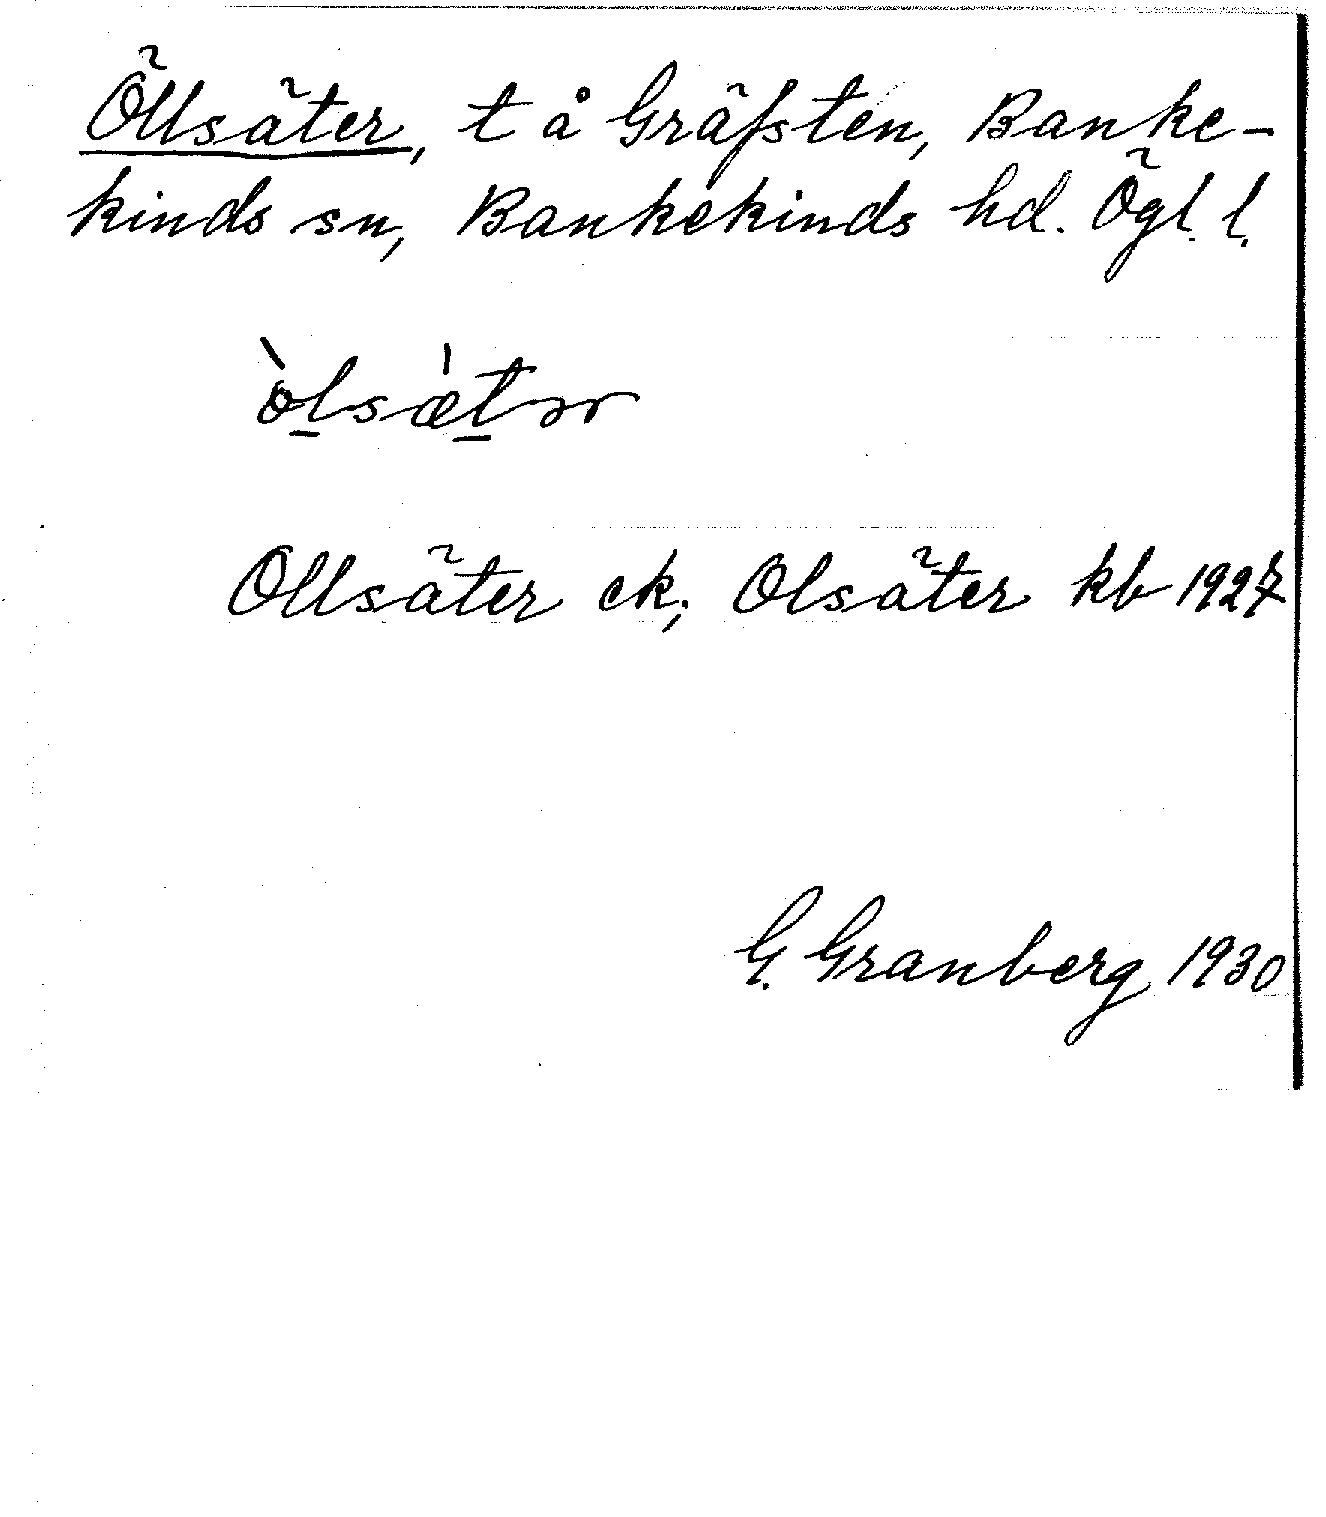 Öllsäter, t å Gräfsten, Banke-
kinds sn, Bankekinds hd. Ögl. l.
òlsætər
Ollsäter ek; Olsäter kb 1927
G. Granberg 1930